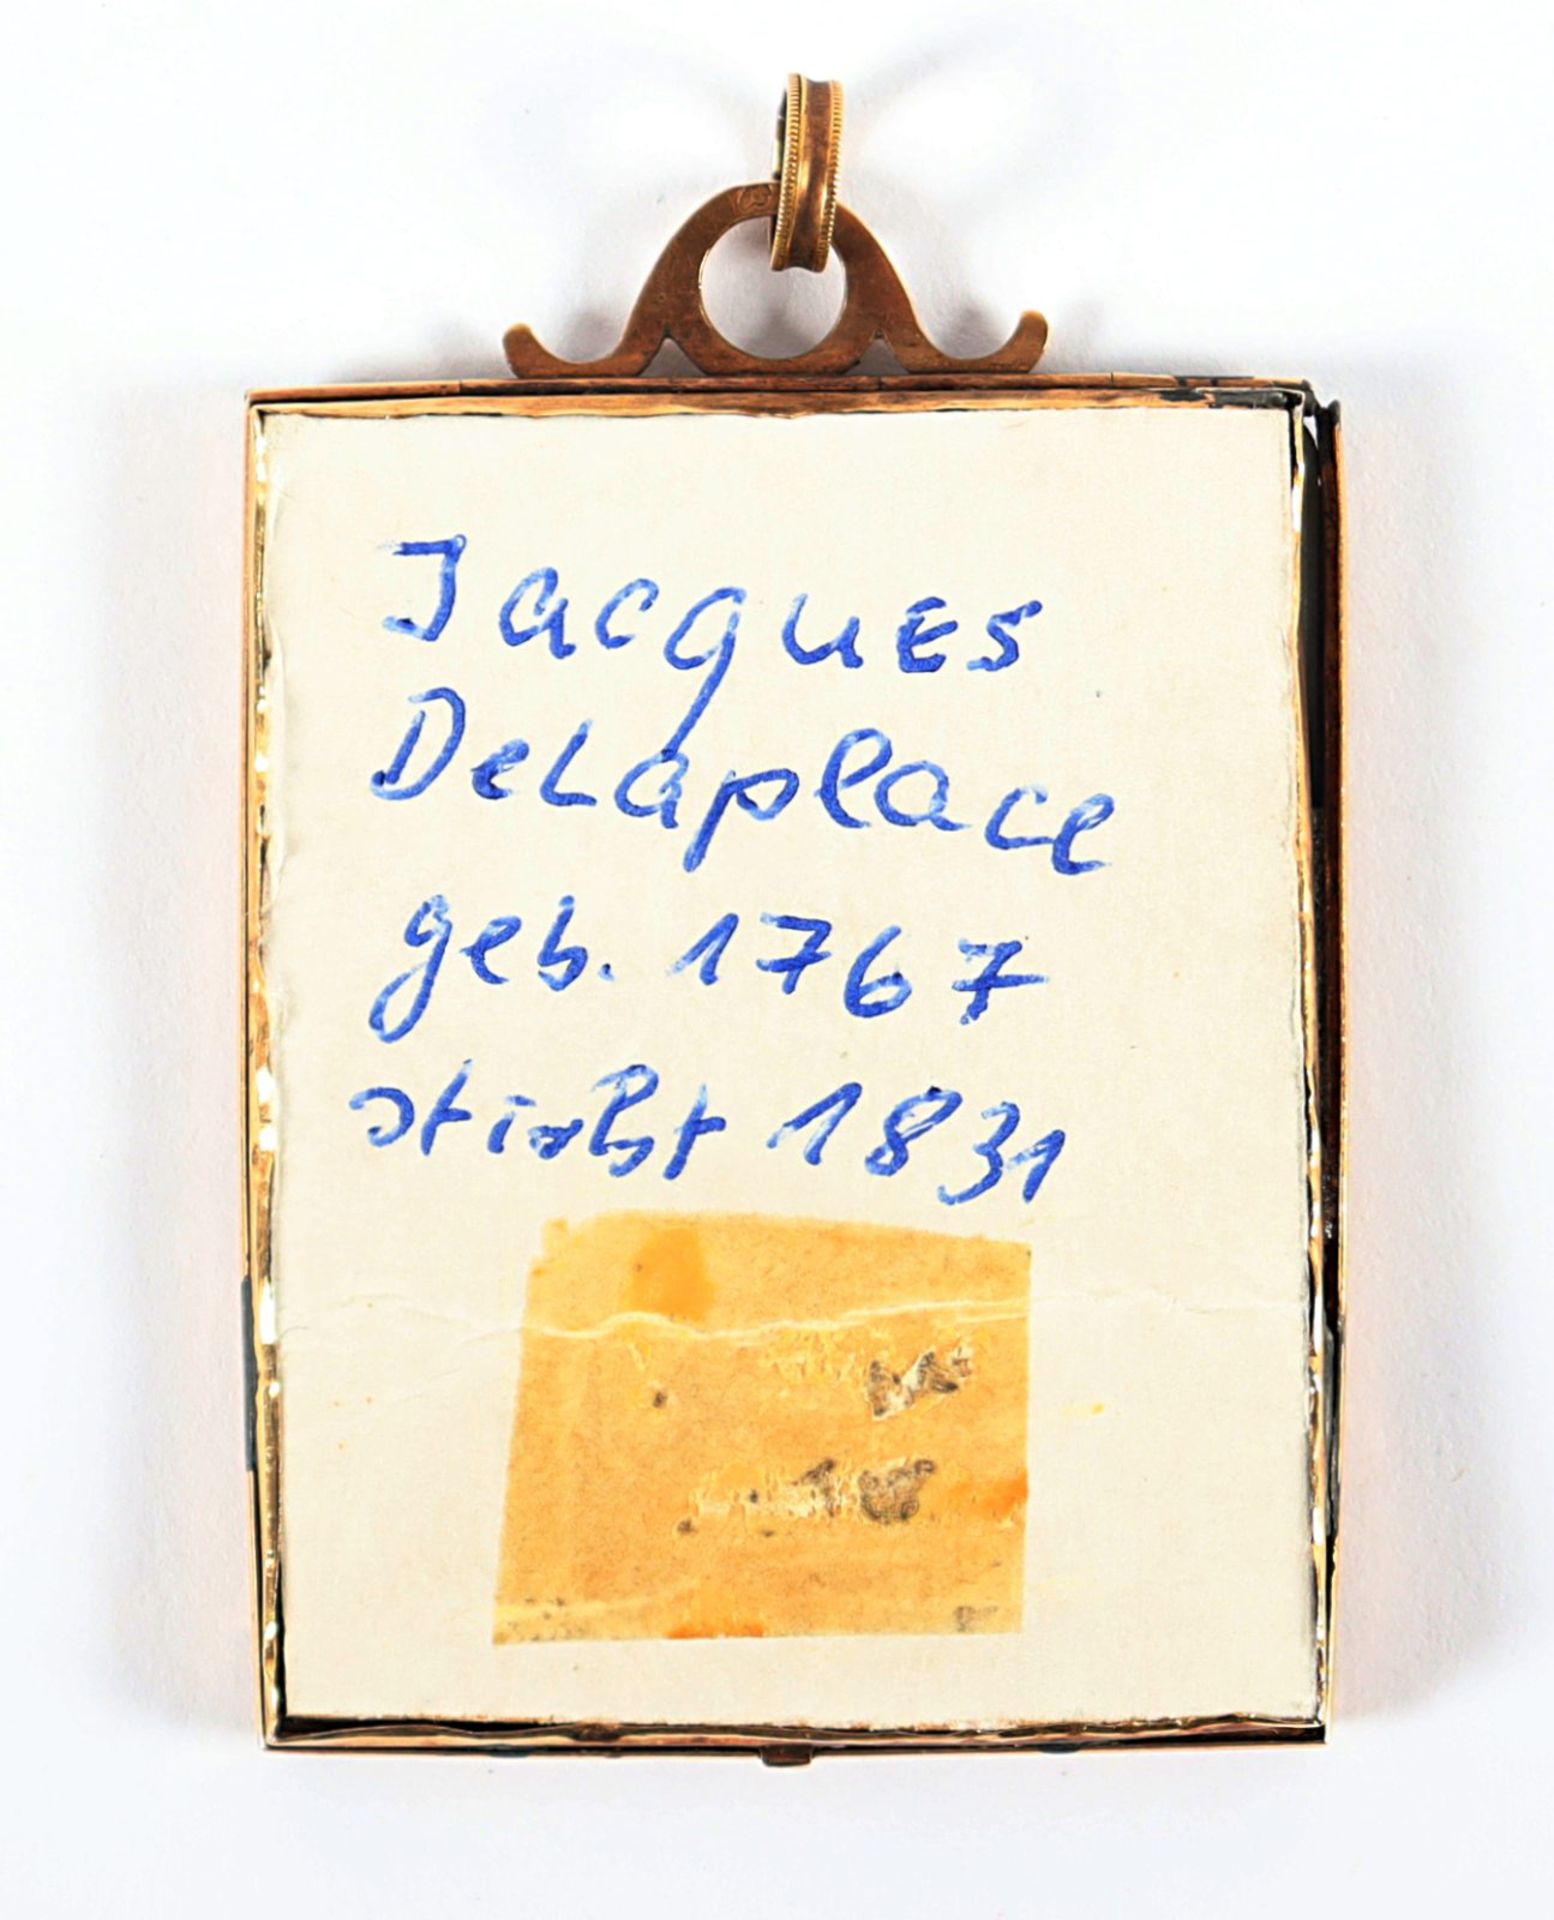 Jacques
DeLaplace
geb. 1767
stirbt 1831